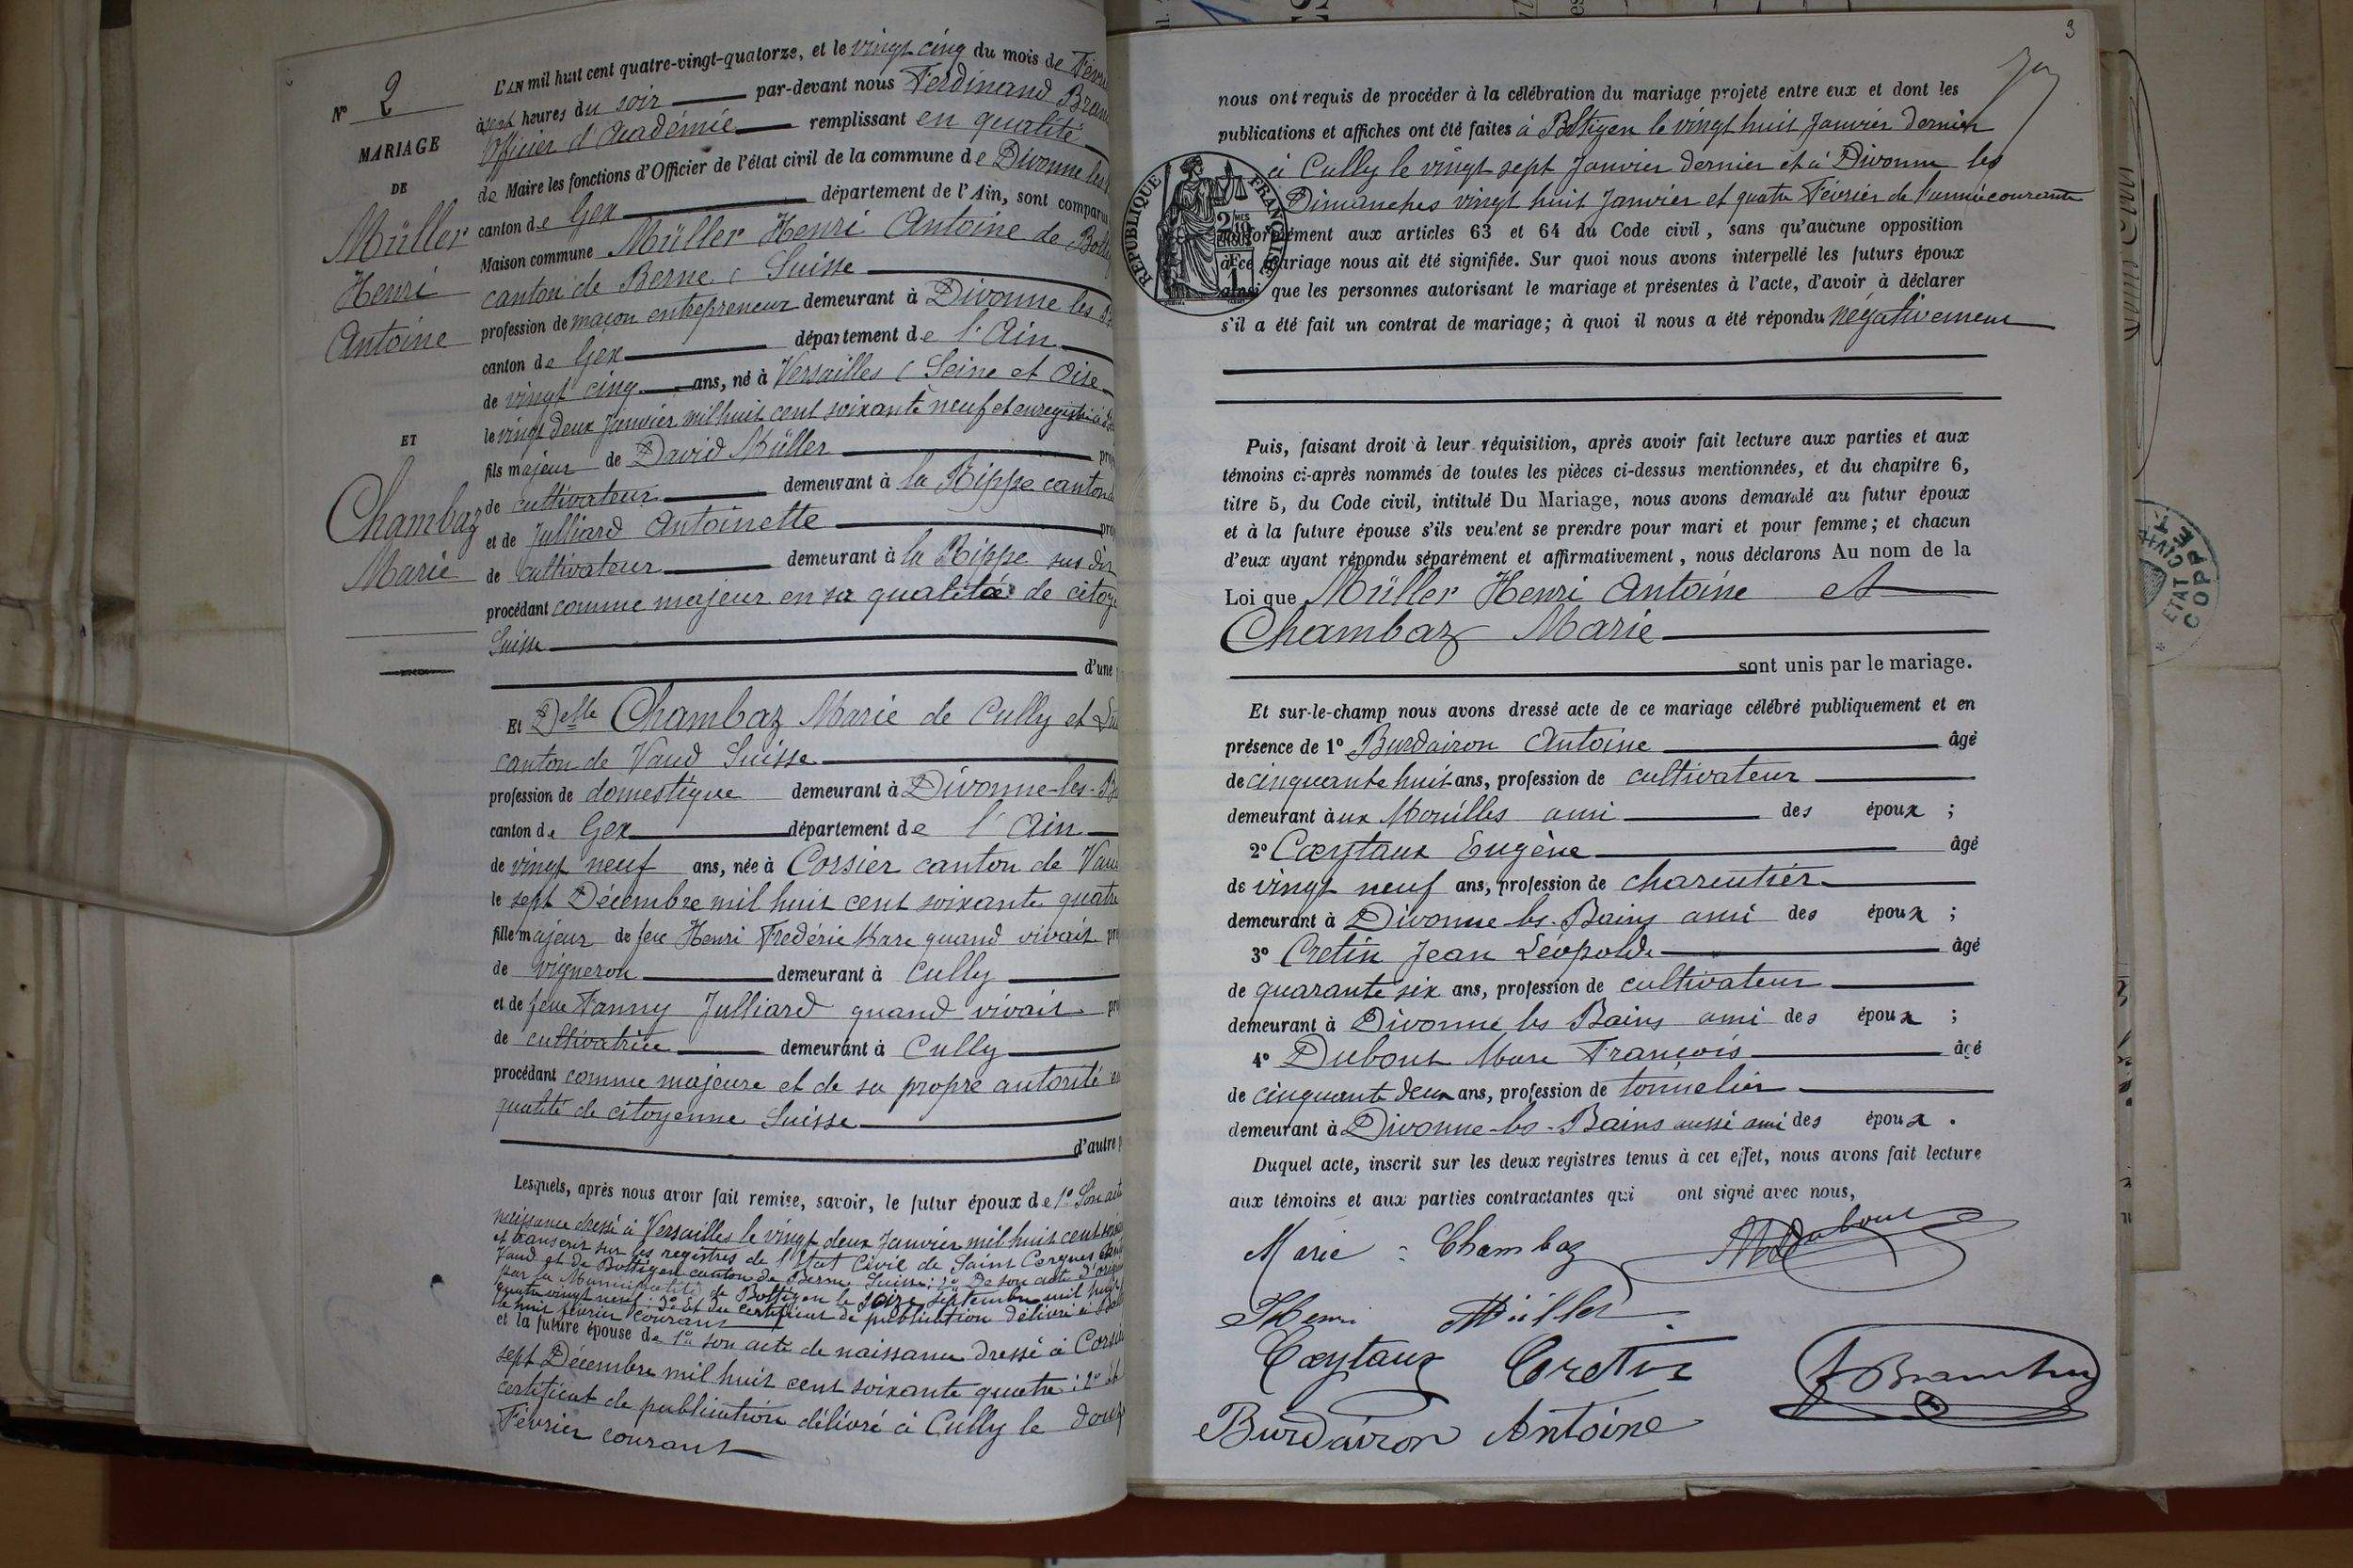 N° 2
MARIAGE
DE
Müller
Henri
Antoine
ET
Chambaz
Marie
L'AN mil huit cent quatre-vingt-quatorze, et le vingt cinq du mois de Févri
à sept heures du soir par-devant nous Ferdinand Bran
Officier d'Académie remplissant en qualité
de Maire les fonctions d'Officier de l'état civil de la commune de Divonne les
canton de Gex département de l'Ain, sont comparu
Maison commune Müller Henri Antoine de
canton de Berne, Suisse
profession de maçon entrepreneur demeurant à Divonne les B
canton de Gex département de l'Ain
de vingt cinq ans, né à Versailles (Seine et Oise
le vingt deux Janvier mil huit cent soixante neuf et enregistré à
fils majeur de David Müller pro
de cultivateur demeurant à la Rippe canton
et de Julliard Antoinette pro
de cultivateur demeurant à la Rippe sus dit
procédant comme majeur en sa qualité de citoye
Suisse
d'une
Et Delle Chambaz Marie de Cully et
canton de Vaud Suisse
profession de domestique demeurant à Divonne-les-B
canton de Gex département de l'Ain
de vingt neuf ans, née à Corsier canton de Vau
le sept Décembre mil huit cent soixante quatre
fille majeur de feu Henri Frédéric Marc quand vivait pro
de vigneron demeurant à Cully
et de feue Fanny Julliard quand vivait pro
de cultivatrice demeurant à Cully
procédant comme majeure et de sa propre autorité en
qualité de citoyenne Suisse
d'autre p
Lesquels, après nous avoir fait remise, savoir, le futur époux de 1° Son acte
naissance dressé à Versailles le vingt deux Janvier mil huit cent soix
et transcrit sur les registres de l'Etat Civil de Saint Cergues
Vaud et de Boltigen canton de Berne Suisse; 2° De son acte d'origine
par la Municipalité de Boltigen le seize Septembre mil huit
quatre vingt neuf; 3° Et du certificat de publication délivré à
le huit février courant
et la future épouse de 1° son acte de naissance dressé à Corsier
sept Décembre mil huit cent soixante quatre; 2° et
certificat de publication délivré à Cully le douze
Février courant
3
nous ont requis de procéder à la célébration du mariage projeté entre eux et dont les
publications et affiches ont été faites à Boltigen le vingt huit Janvier dernier
à Cully le vingt sept Janvier dernier et à Divonne les
Dimanches vingt huit Janvier et quatre Février de l'année courante
RÉPUBLIQUE FRANÇAISE
conformément aux articles 63 et 64 du Code civil, sans qu'aucune opposition
à ce mariage nous ait été signifiée. Sur quoi nous avons interpellé les futurs époux
ainsi que les personnes autorisant le mariage et présentes à l'acte, d'avoir à déclarer
s'il a été fait un contrat de mariage; à quoi il nous a été répondu négativement
Puis, faisant droit à leur réquisition, après avoir fait lecture aux parties et aux
témoins ci-après nommés de toutes les pièces ci-dessus mentionnées, et du chapitre 6,
titre 5, du Code civil, intitulé Du Mariage, nous avons demandé au futur époux
et à la future épouse s'ils veulent se prendre pour mari et pour femme; et chacun
d'eux ayant répondu séparément et affirmativement, nous déclarons Au nom de la
Loi que Müller Henri Antoine et
Chambaz Marie
sont unis par le mariage.
Et sur-le-champ nous avons dressé acte de ce mariage célébré publiquement et en
présence de 1° Burdairon Antoine âgé
de cinquante huit ans, profession de cultivateur
demeurant aux Mouilles ami des époux ;
2° Coeytaux Eugène âgé
de vingt neuf ans, profession de charentier
demeurant à Divonne-les-Bains ami des époux ;
3° Cretin Jean Léopold âgé
de quarante six ans, profession de cultivateur
demeurant à Divonne les Bains ami des époux ;
4° Dubout Marc François âgé
de cinquante deux ans, profession de tonnelier
demeurant à Divonne-les-Bains aussi ami des époux .
Duquel acte, inscrit sur les deux registres tenus à cet effet, nous avons fait lecture
aux témoins et aux parties contractantes qui ont signé avec nous,
Marie Chambaz
M Dubout
Henri Müller
Coeytaux Cretin
Burdairon Antoine
ETAT CIVIL
COPPET